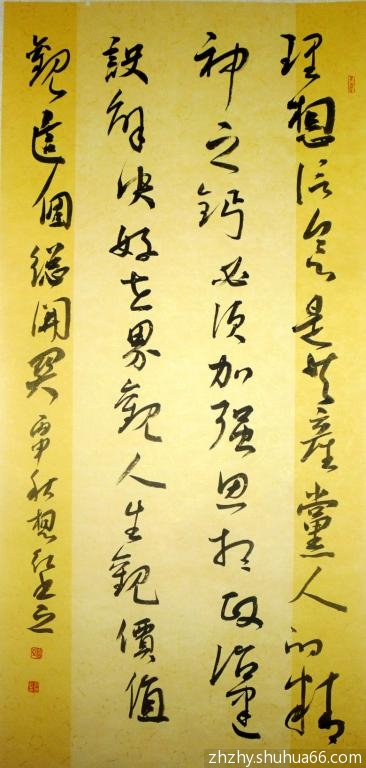 理想信念是共產黨人的精
神之鈣必須加强思想政治建
設解決好世界觀人生觀價值
觀這個總開關 丙申秋想红书之
zhzhy.shuhua66.com